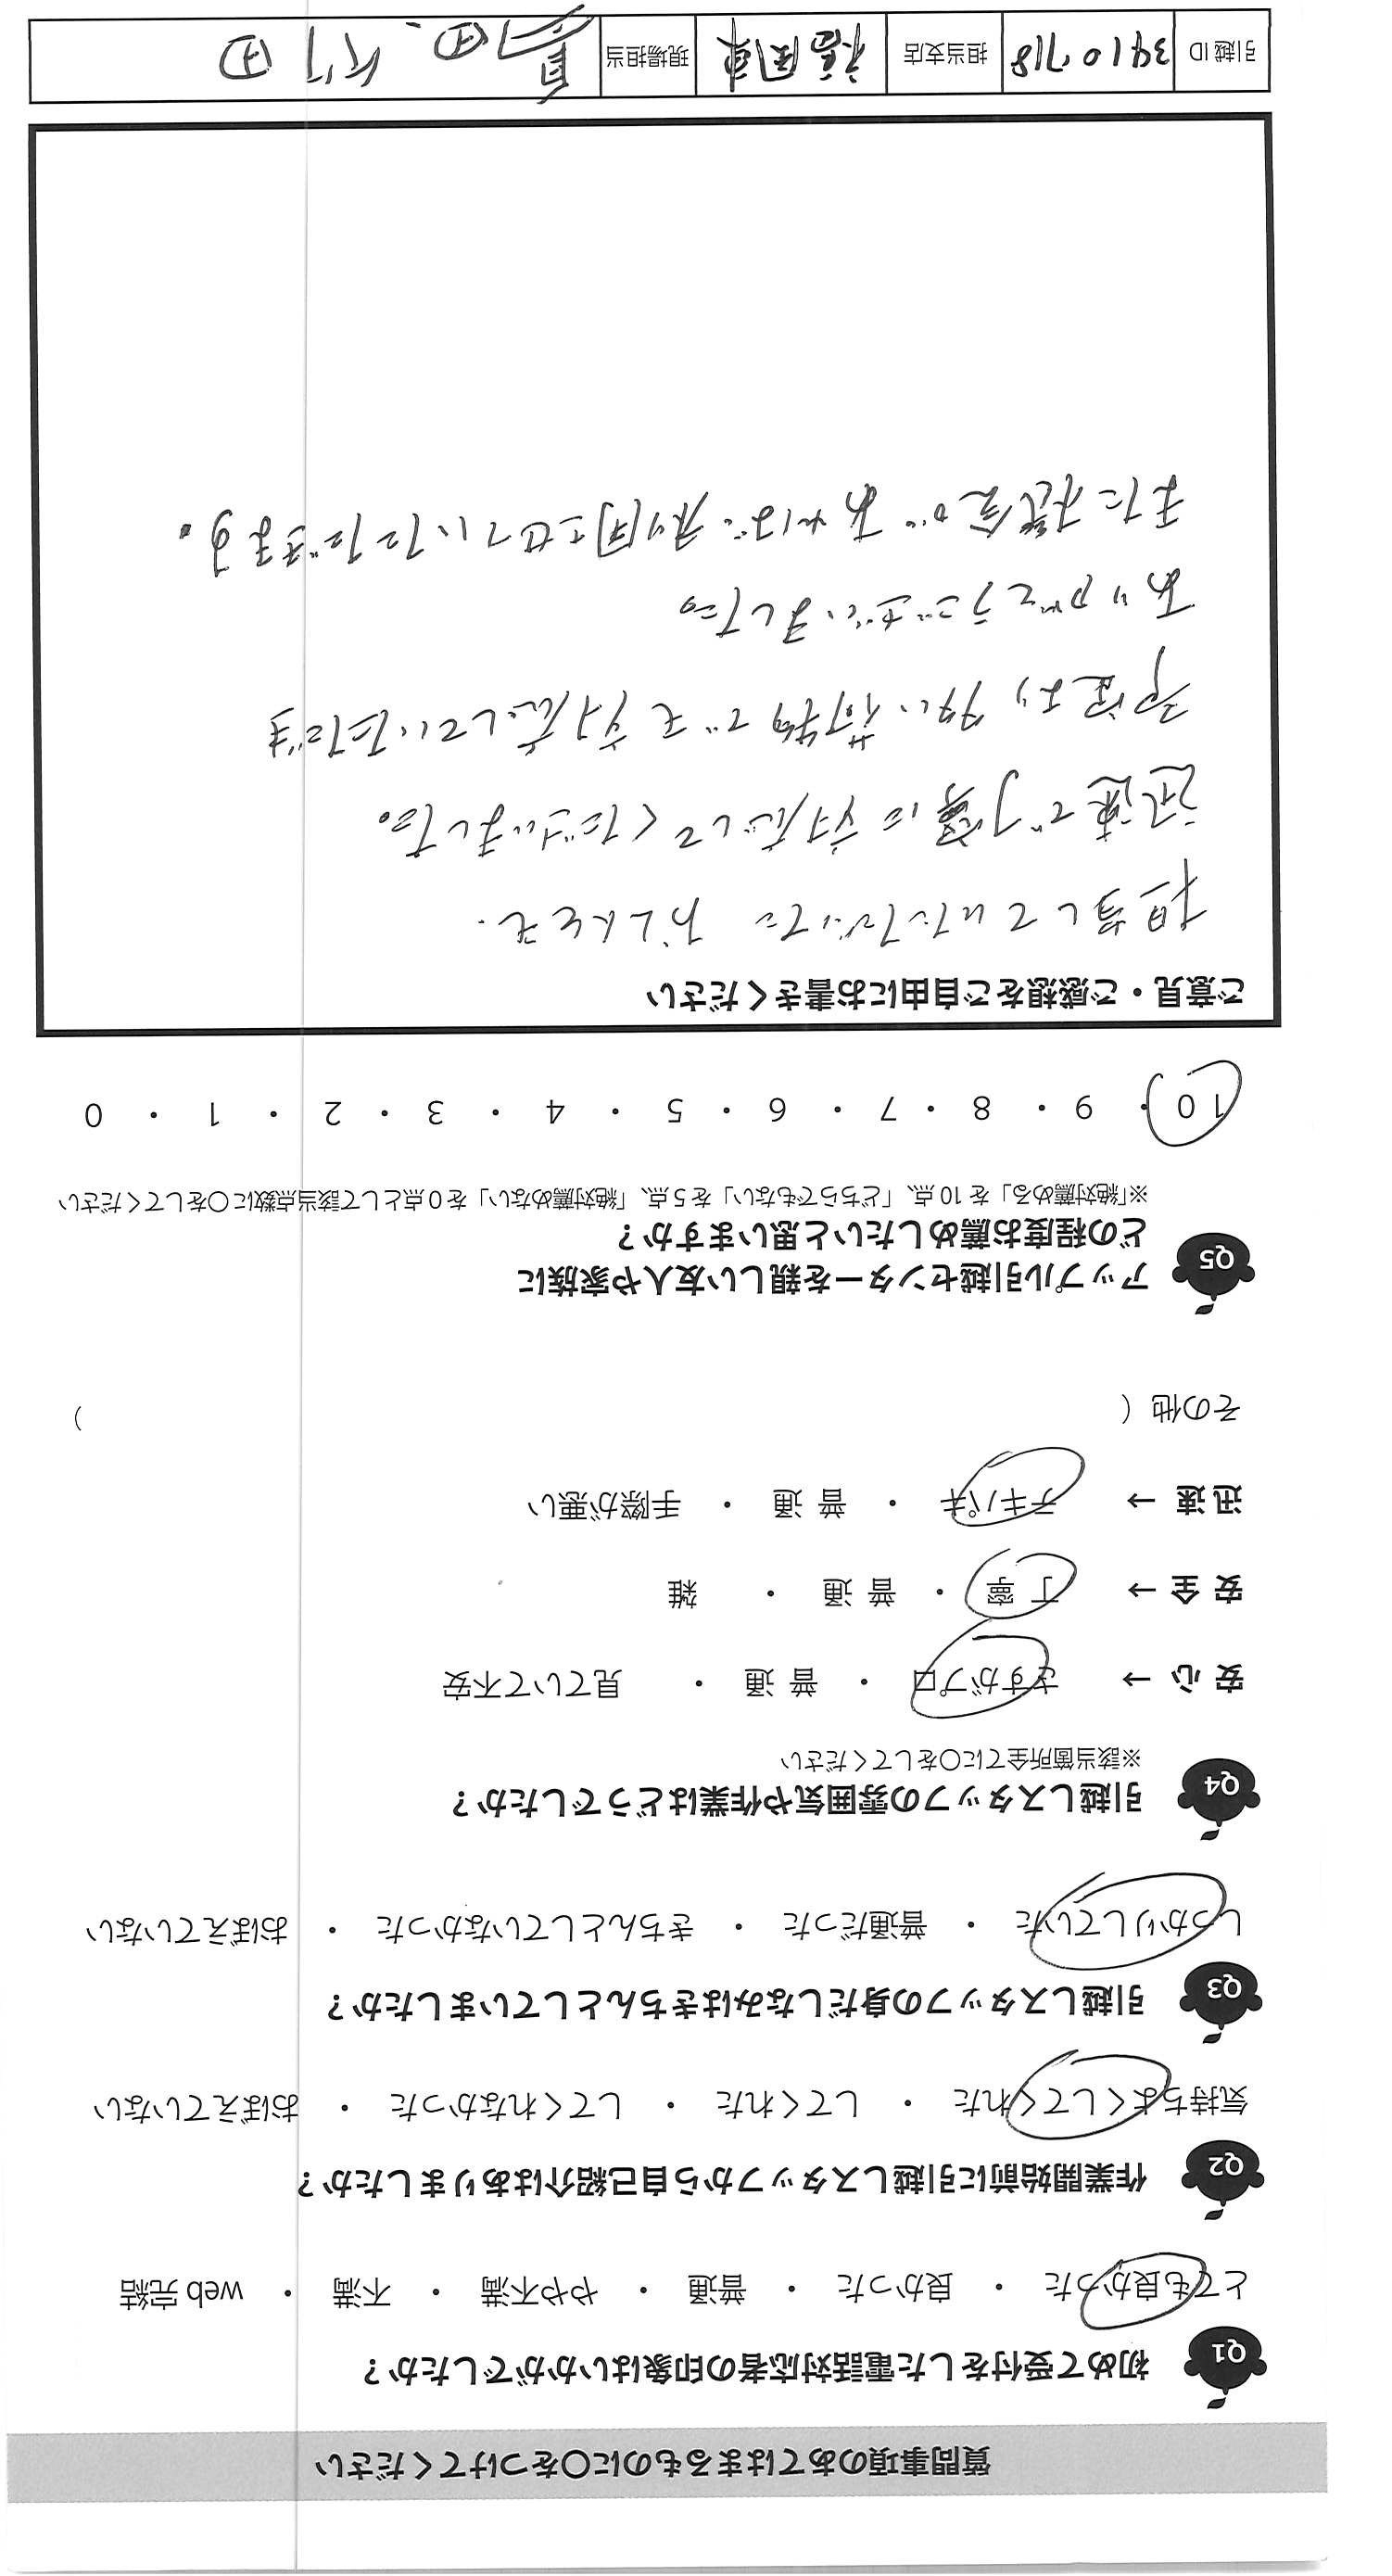 質問事項のあてはまるものに〇をつけてください
Q1 初めて受付をした電話対応者の印象はいかがでしたか？
とても良かった ・ 良かった ・ 普通 ・ やや不満 ・ 不満 ・ web 完結
Q2 作業開始前に引越しスタッフから自己紹介はありましたか？
気持ちよくしてくれた ・ してくれた ・ してくれなかった ・ おぼえていない
Q3 引越しスタッフの身だしなみはきちんとしていましたか？
しっかりしていた ・ 普通だった ・ きちんとしていなかった ・ おぼえていない
Q4 引越しスタッフの雰囲気や作業はどうでしたか？
※該当箇所全てに〇をしてください
安 心 → さすがプロ ・ 普 通 ・ 見ていて不安
安 全 → 丁 寧 ・ 普 通 ・ 雑
迅 速 → テキパキ ・ 普 通 ・ 手際が悪い
その他（ ）
Q5 アップル引越センターを親しい友人や家族に
どの程度お薦めしたいと思いますか？
※「絶対薦める」を 10 点、「どちらでもない」を 5 点、「絶対薦めない」を 0 点として該当点数に〇をしてください
10 ・ 9 ・ 8 ・ 7 ・ 6 ・ 5 ・ 4 ・ 3 ・ 2 ・ 1 ・ 0
ご意見・ご感想をご自由にお書きください
担当していただいた
迅速で丁寧に対応してくださいました。
予定より多い荷物でも対応していただき
ありがとうございました。
また機会があれば利用させていただきます。
引越 ID 3410718 担当支店 福岡東 現場担当 田